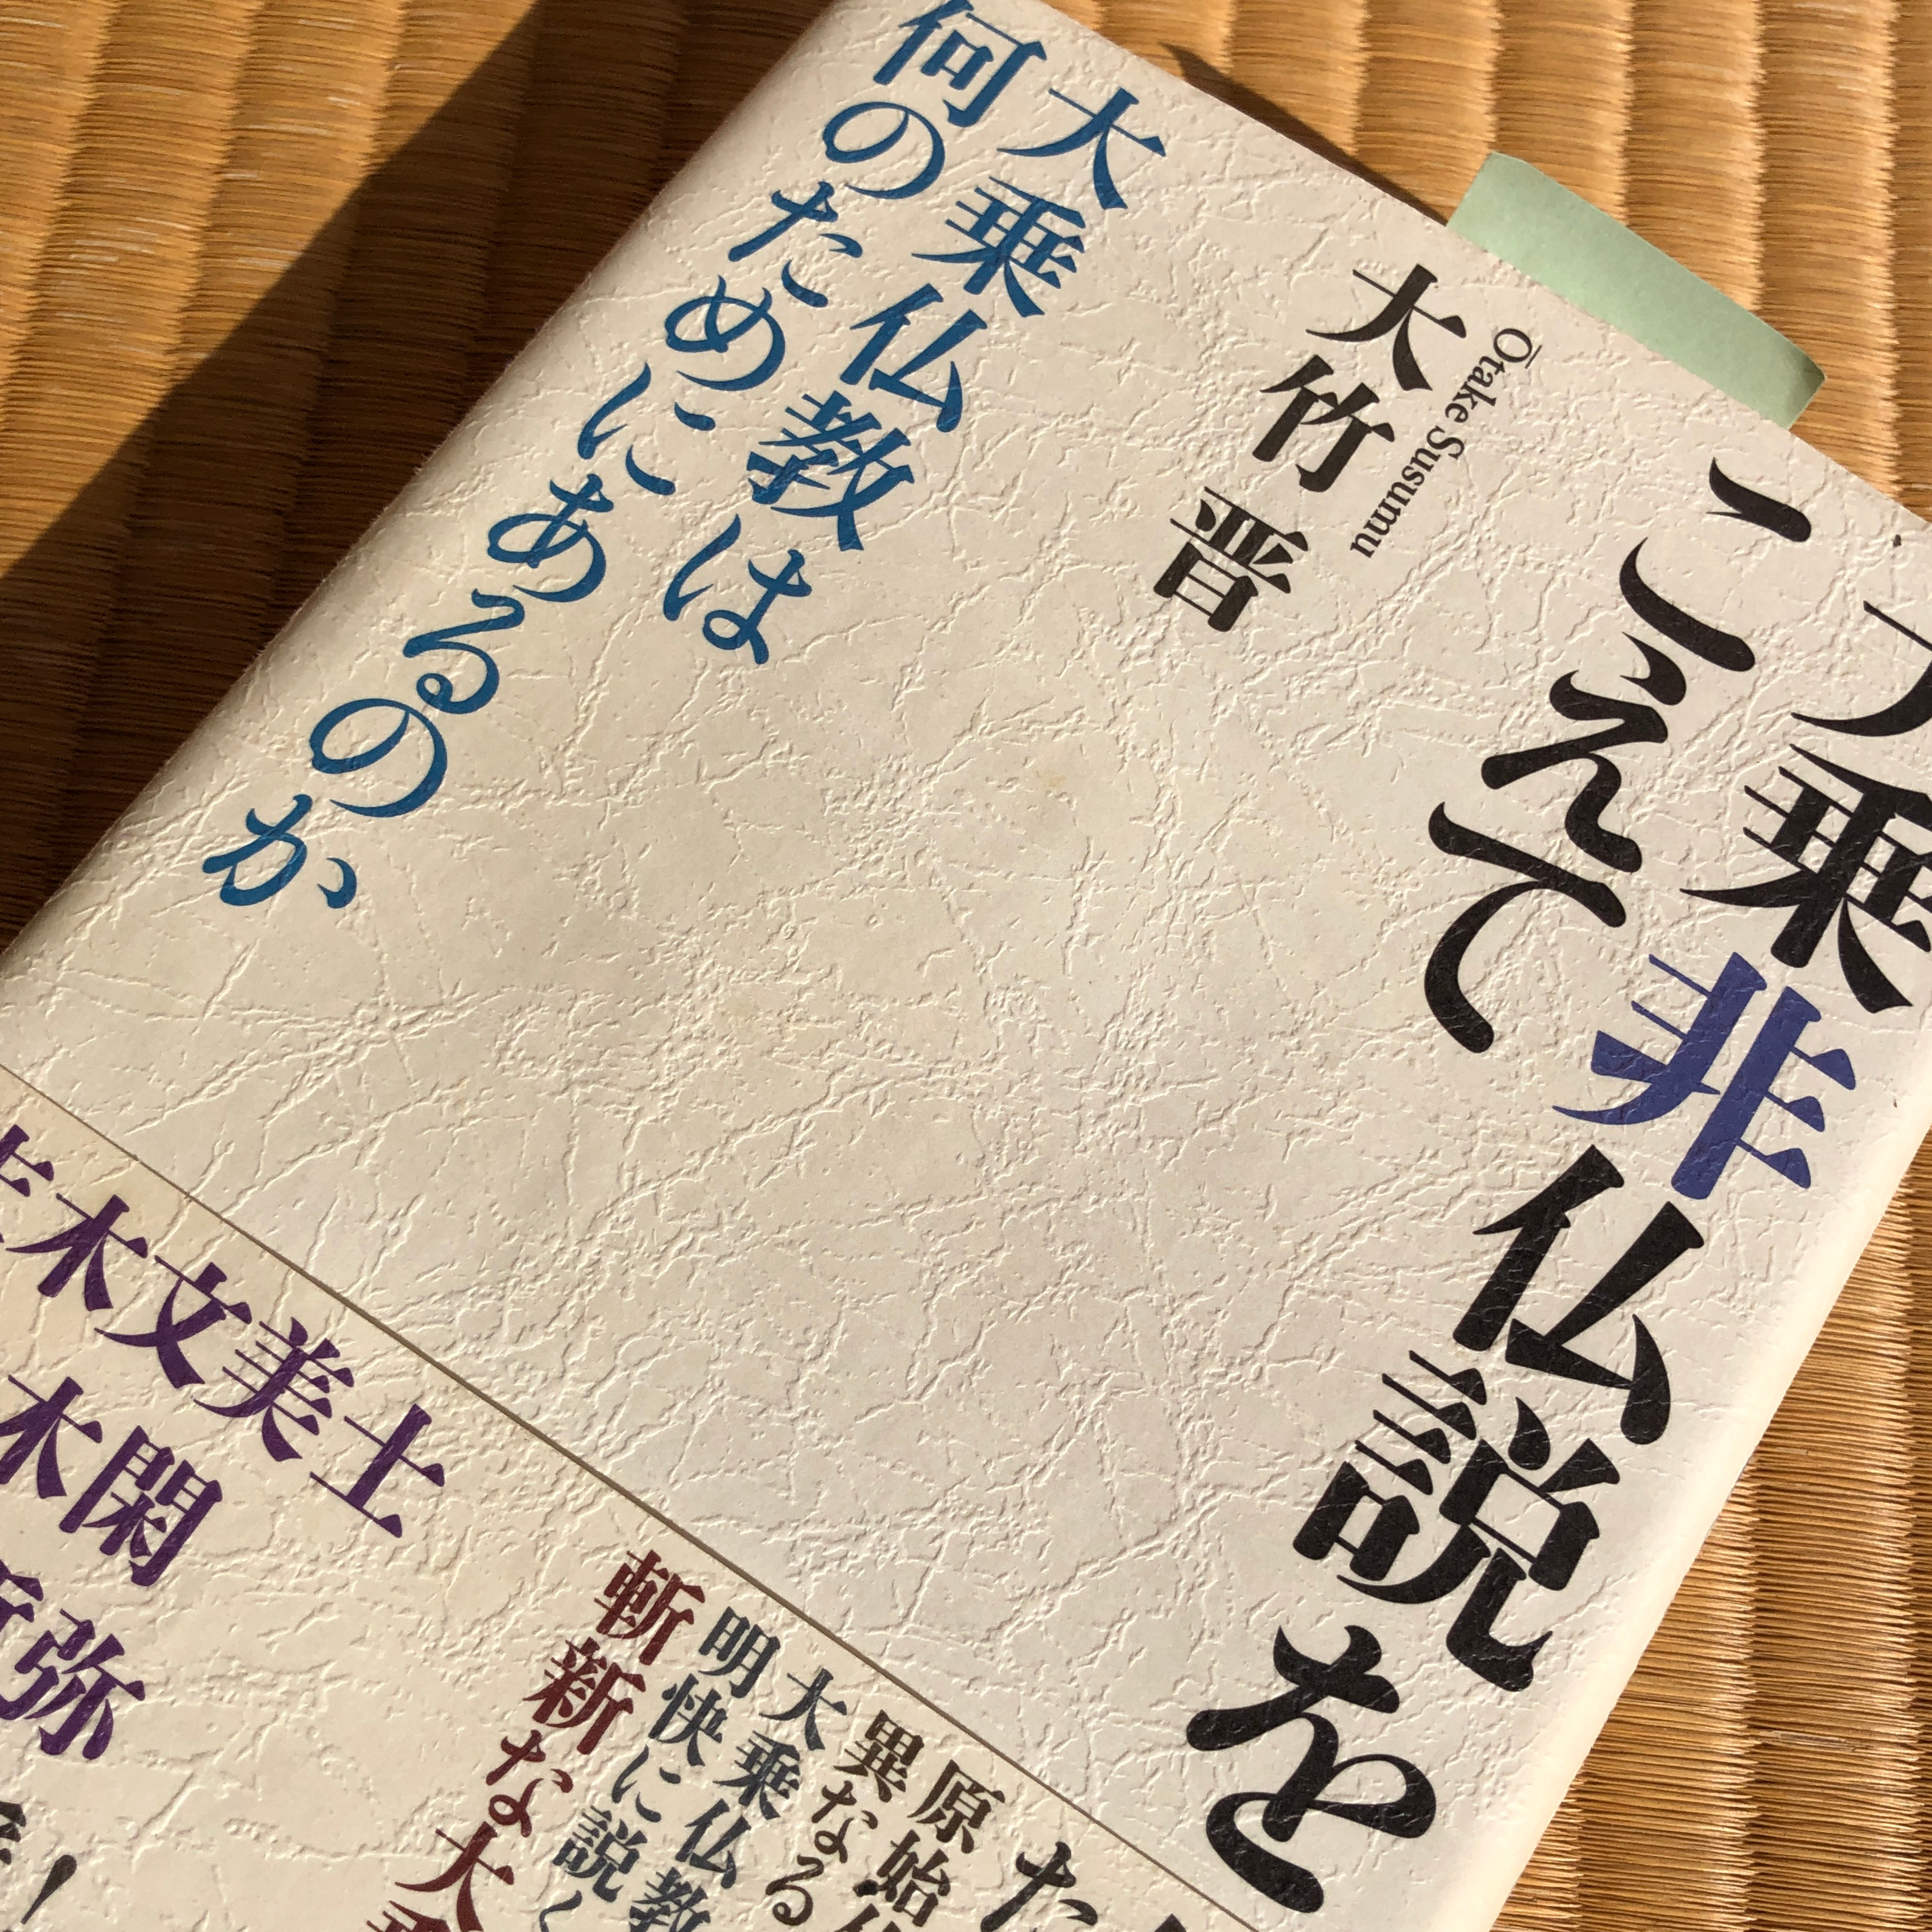 大乗非仏説を
こえて
大竹 晋
Ōtake Susumu
大乗仏教は
何のためにあるのか
原始
異なる
大乗仏教
明快に説く
斬新な大
木文美士
木閑
弥